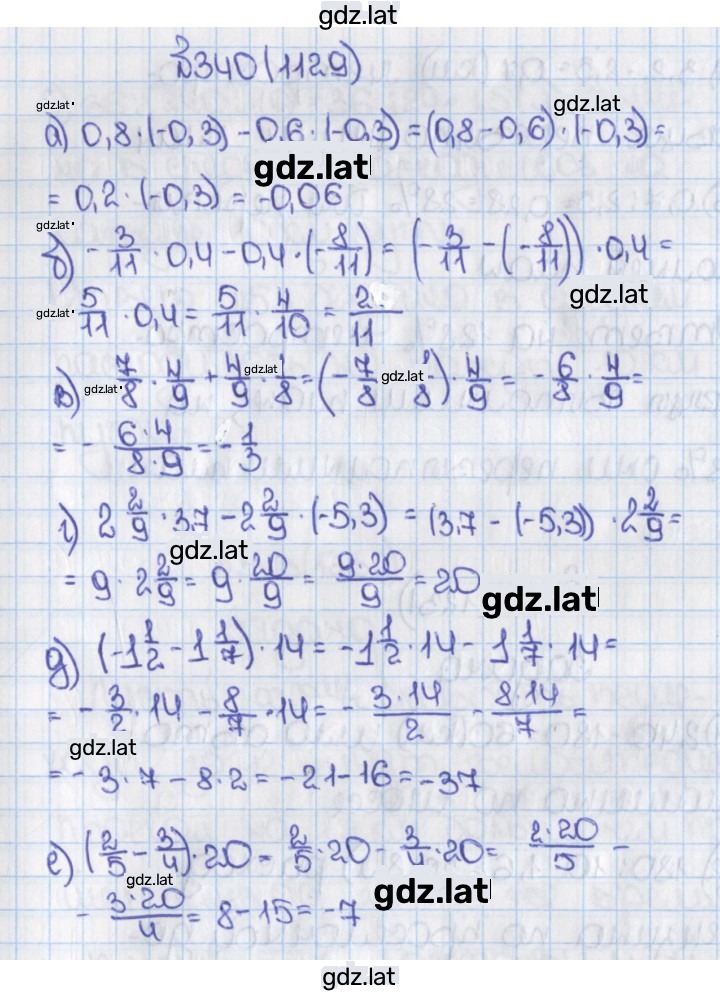 gdz.lat
№340 (1129)
gdz.lat gdz.lat
а) 0,8·(-0,3) - 0.6·(-0,3) = (0,8-0,6)·(-0,3) =
gdz.lat
= 0,2·(-0,3) = -0,06
gdz.lat
б) - 3/11 · 0,4 - 0,4·(- 8/11) = (- 3/11 - (- 8/11)) · 0,4 =
gdz.lat
gdz.lat 5/11 · 0,4 = 5/11 · 4/10 = 2/11
в) gdz.lat 7/8 · 4/9 + 4/9 gdz.lat · 1/8 = (- 7/8 gdz.lat 1/8) · 4/9 = - 6/8 · 4/9 =
= - 6·4/8·9 = - 1/3
г) 2 2/9 · 3,7 - 2 2/9 · (-5,3) = (3,7 - (-5,3)) · 2 2/9 =
gdz.lat
= 9 · 2 2/9 = 9 · 20/9 = 9·20/9 = 20
gdz.lat
д) (-1 1/2 - 1 1/7) · 14 = -1 1/2 · 14 - 1 1/7 · 14 =
= - 3/2 · 14 - 8/7 · 14 = - 3·14/2 - 8·14/7 =
gdz.lat
= - 3·7 - 8·2 = -21-16 = -37
е) (2/5 - 3/4)·20 = 2/5 · 20 - 3/4 · 20 = 2·20/5 -
gdz.lat gdz.lat
- 3·20/4 = 8-15 = -7
gdz.lat